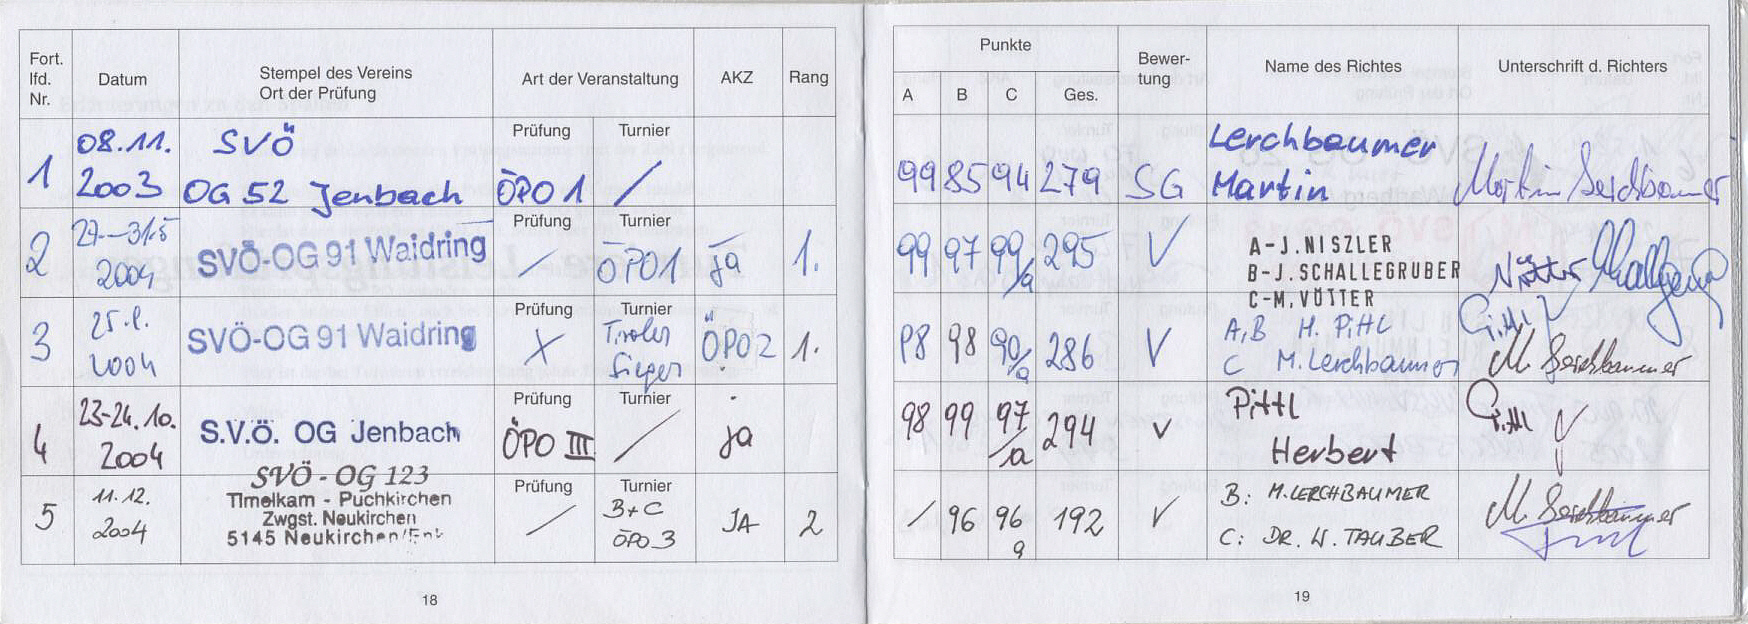 Fort. lfd. Nr.
Datum
Stempel des Vereins
Ort der Prüfung
Art der Veranstaltung
AKZ
Rang
1
08.11.
2003
SVÖ
OG 52 Jenbach
Prüfung
ÖPO 1
Turnier
/
2
29.-31.5
2004
SVÖ-OG 91 Waidring
Prüfung
/
Turnier
ÖPO1
ja
1.
3
2004
SVÖ-OG 91 Waidring
Prüfung
X
Turnier
Tiroler
Sieger
ÖPO 2
1.
4
23-24.10.
2004
S.V.Ö. OG Jenbach
Prüfung
ÖPO III
Turnier
/
ja
5
11.12.
2004
SVÖ - OG 123
Timelkam - Puchkirchen
Zwgst. Neukirchen
5145 Neukirchen/Enk
Prüfung
/
Turnier
B+C
ÖPO 3
JA
2
18
Punkte
A B C Ges.
Bewer-
tung
Name des Richtes
Unterschrift d. Richters
99 85 94 279 SG
Lerchbaumer
Martin
Martin Lerchbaumer
99 97 99/a 295 V
A-J.NISZLER
B-J.SCHALLEGRUBER
C-M.VÖTTER
98 98 90/a 286 V
A,B H. Pittl
C M. Lerchbaumer
Pittl
M. Lerchbaumer
98 99 97/a 294 V
Pittl
Herbert
Pittl
/ 96 96 a 192 V
B: M. LERCHBAUMER
C: DR. W. TAUBER
M. Lerchbaumer
19